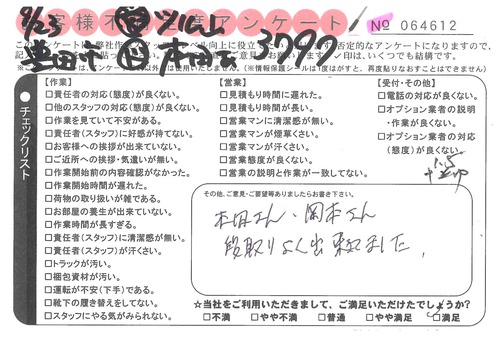 お客様不満度アンケート
№ 064612
チェックリスト
【作業】
□責任者の対応(態度)が良くない。
□他のスタッフの対応(態度)が良くない。
□作業を見ていて不安がある。
□責任者(スタッフ)に好感が持てない。
□お客様への挨拶が出来ていない。
□ご近所への挨拶・気遣いが無い。
□作業開始前の内容確認がなかった。
□作業開始時間が遅れた。
□荷物の取り扱いが雑である。
□お部屋の養生が出来ていない。
□作業時間が長すぎる。
□責任者(スタッフ)に清潔感が無い。
□責任者(スタッフ)が汗くさい。
□トラックが汚い。
□梱包資材が汚い。
□運転が不安(下手)である。
□靴下の履き替えをしてない。
□スタッフにやる気がみられない。
【営業】
□見積もり時間に遅れた。
□見積もり時間が長い。
□営業マンに清潔感が無い。
□営業マンが煙草くさい。
□営業マンが汗くさい。
□営業態度が良くない。
□営業の説明と作業が一致してない。
【受付・その他】
□電話の対応が良くない。
□オプション業者の説明・作業が良くない。
□オプション業者の対応(態度)が良くない。
その他、ご意見・ご要望等ありましたらお書き下さい。
本田さん・岡本さん
段取りよく出来ました
☆当社をご利用いただきまして、ご満足いただけたでしょうか?
□不満 □やや不満 □普通 □やや満足 □満足